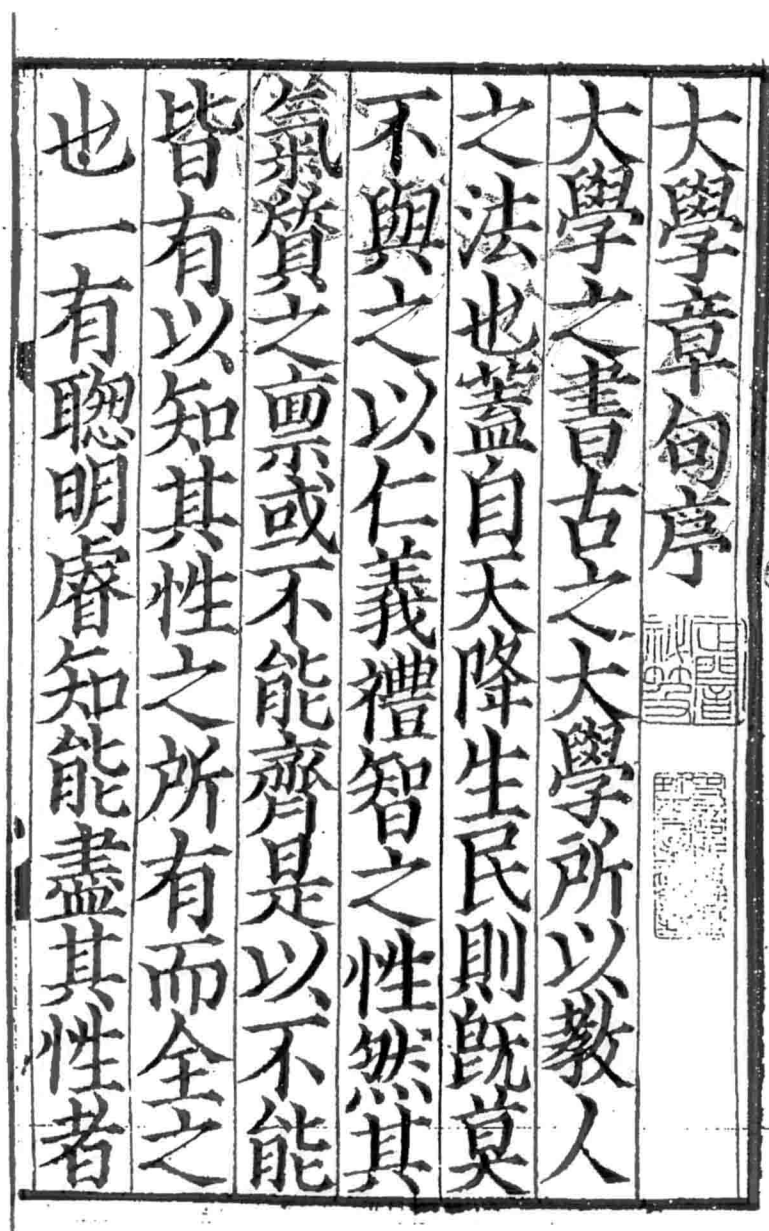 大學章句序
大學之書古之大學所以教人
之法也蓋自天降生民則既莫
不與之以仁義禮智之性然其
氣質之稟或不能齊是以不能
皆有以知其性之所有而全之
也一有聰明睿知能盡其性者